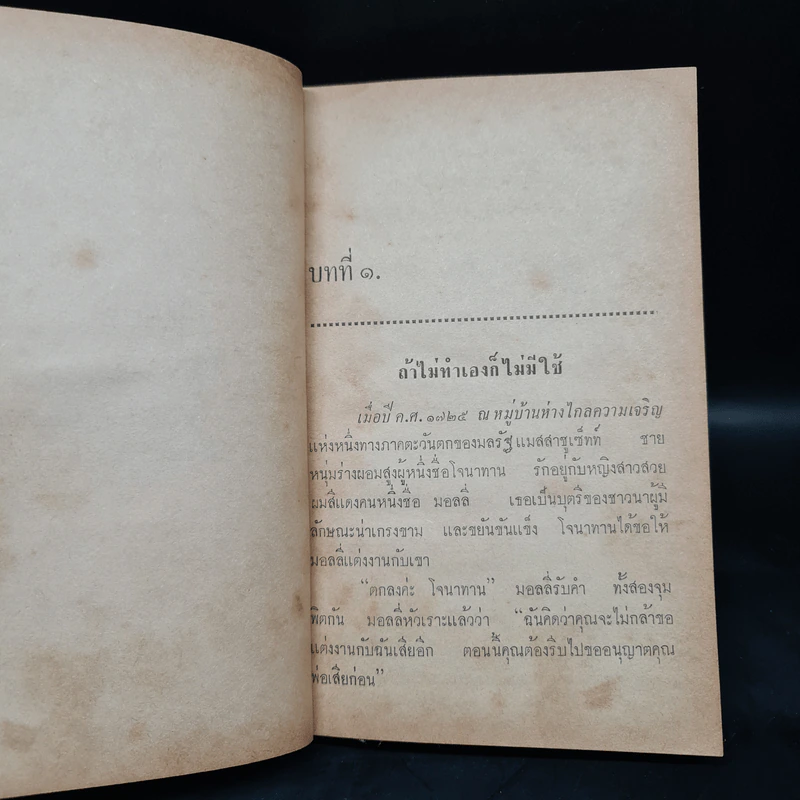 บทที่ ๑.
ถ้าไม่ทำเองก็ไม่มีใช้
เมื่อปี ค.ศ. ๑๗๒๕ ณ หมู่บ้านห่างไกลความเจริญ
แห่งหนึ่งทางภาคตะวันตกของมลรัฐแมสสาชูเซ็ทท์ ชาย
หนุ่มร่างผอมสูงผู้หนึ่งชื่อโจนาทาน รักอยู่กับหญิงสาวสวย
ผมสีแดงคนหนึ่งชื่อ มอลลี่ เธอเป็นบุตรีของชาวนาผู้มี
ลักษณะน่าเกรงขาม และขยันขันแข็ง โจนาทานได้ขอให้
มอลลี่แต่งงานกับเขา
“ตกลงค่ะ โจนาทาน” มอลลี่รับคำ ทั้งสองจุม
พิตกัน มอลลี่หัวเราะแล้วว่า “ฉันคิดว่าคุณจะไม่กล้าขอ
แต่งงานกับฉันเสียอีก ตอนนี้คุณต้องรีบไปขออนุญาตคุณ
พ่อเสียก่อน”